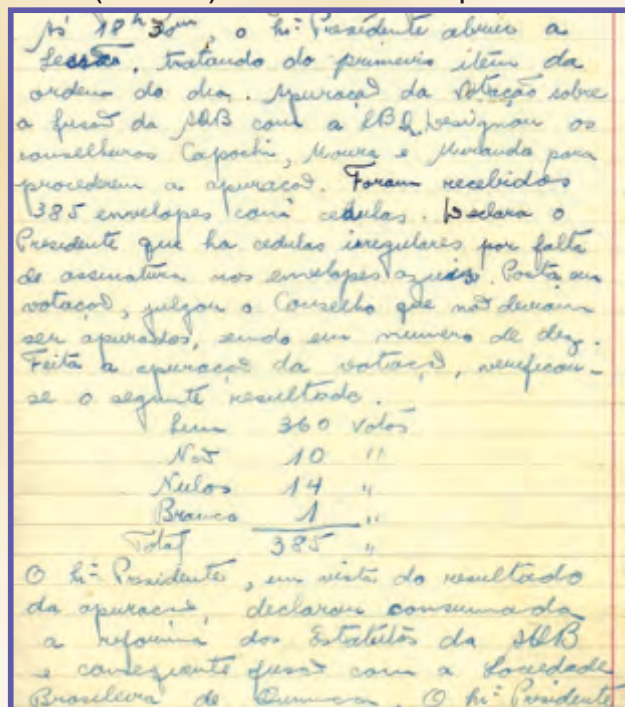 Ás 18h 30m, o Snr. Presidente abriu a
sessão, tratando do primeiro item da
ordem do dia. Apuração da votação sobre
a fusão da AQB com a SBQ, designou os
conselheiros Capochi, Moura e Miranda para
procederem a apuração. Foram recebidos
385 envelopes com cedulas. Declara o
Presidente que ha cedulas irregulares por falta
de assinatura nos envelopes azuis. Posta em
votação, julgou o Conselho que não deviam
ser apurados, sendo em numero de dez.
Feita a apuração da votação, verificou-
se o seguinte resultado.
Sim 360 votos
Não 10 "
Nulos 14 "
Branco 1 "
Total 385 "
O Snr. Presidente, em vista do resultado
da apuração, declarou consumada
a reforma dos Estatutos da AQB
e consequente fusão com a Sociedade
Brasileira de Quimica. O Snr. Presidente